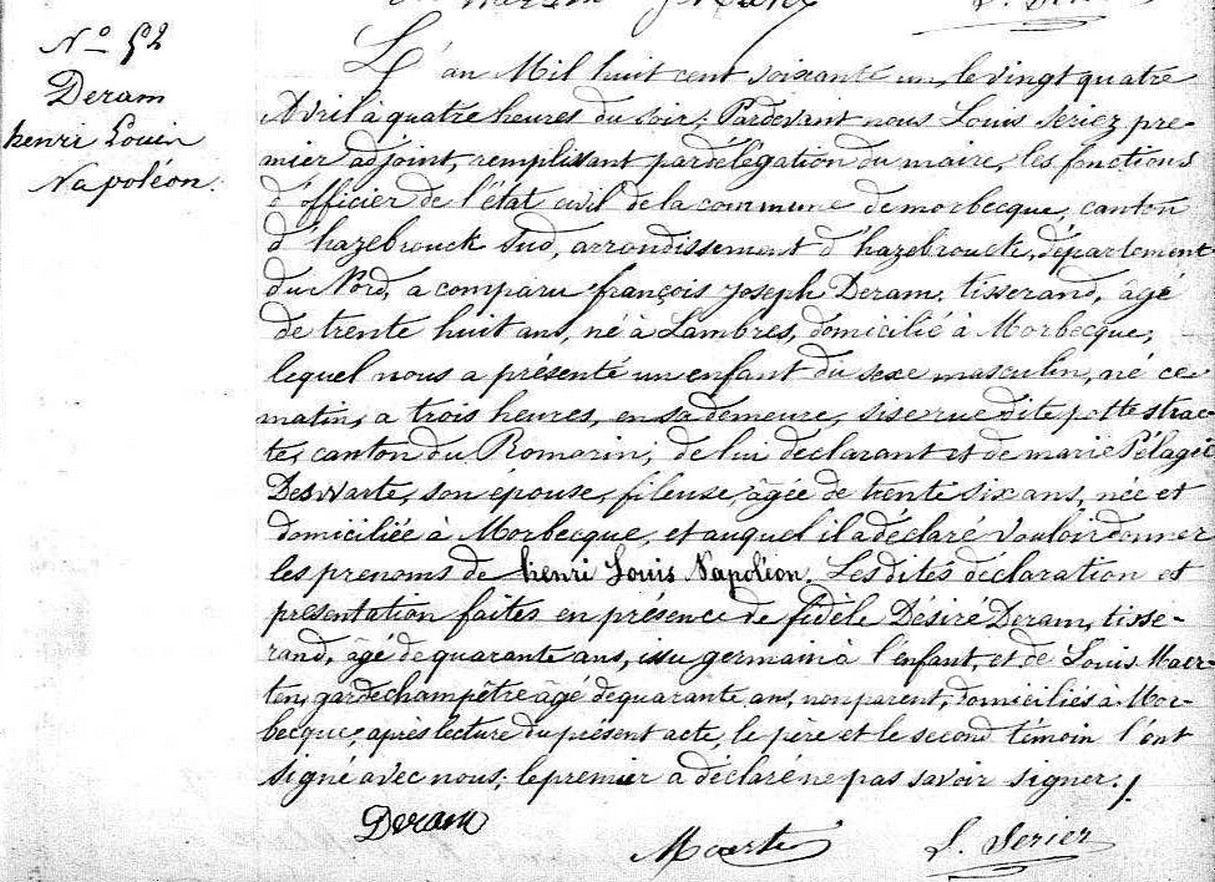 N° 52
Deram
henri Louis
Napoléon.
L'an Mil huit cent soixante un, le vingt quatre
Avril à quatre heures du soir; Pardevant nous Louis Seriez pre-
mier adjoint, remplissant par délégation du maire, les fonctions
d'officier de l'état civil de la commune de morbecque, canton
d'hazebrouck sud, arrondissement d'hazebrouck, département
du Nord, a comparu françois Joseph Deram, tisserand, âgé
de trente huit ans, né à Lambres, domicilié à Morbecque,
lequel nous a présenté un enfant du sexe masculin, né ce
matin, a trois heures, en sa demeure, sise rue dite potte strae-
te, canton du Romarin, de lui déclarant et de marie Pélagie
Deswarte, son épouse, fileuse, âgée de trente six ans, née et
domiciliée à Morbecque, et auquel il a déclaré vouloir donner
les prenoms de henri Louis Napoléon. Les dites déclaration et
présentation faites en présence de fidèle Désiré Deram, tisse-
rand, âgé de quarante ans, issu germain à l'enfant, et de Louis Maer-
ten, garde champêtre âgé de quarante ans, non parent, domiciliés à Mor-
becque; après lecture du présent acte, le père et le second témoin l'ont
signé avec nous; le premier a déclaré ne pas savoir signer.
Deram
Maerte
L. Serier